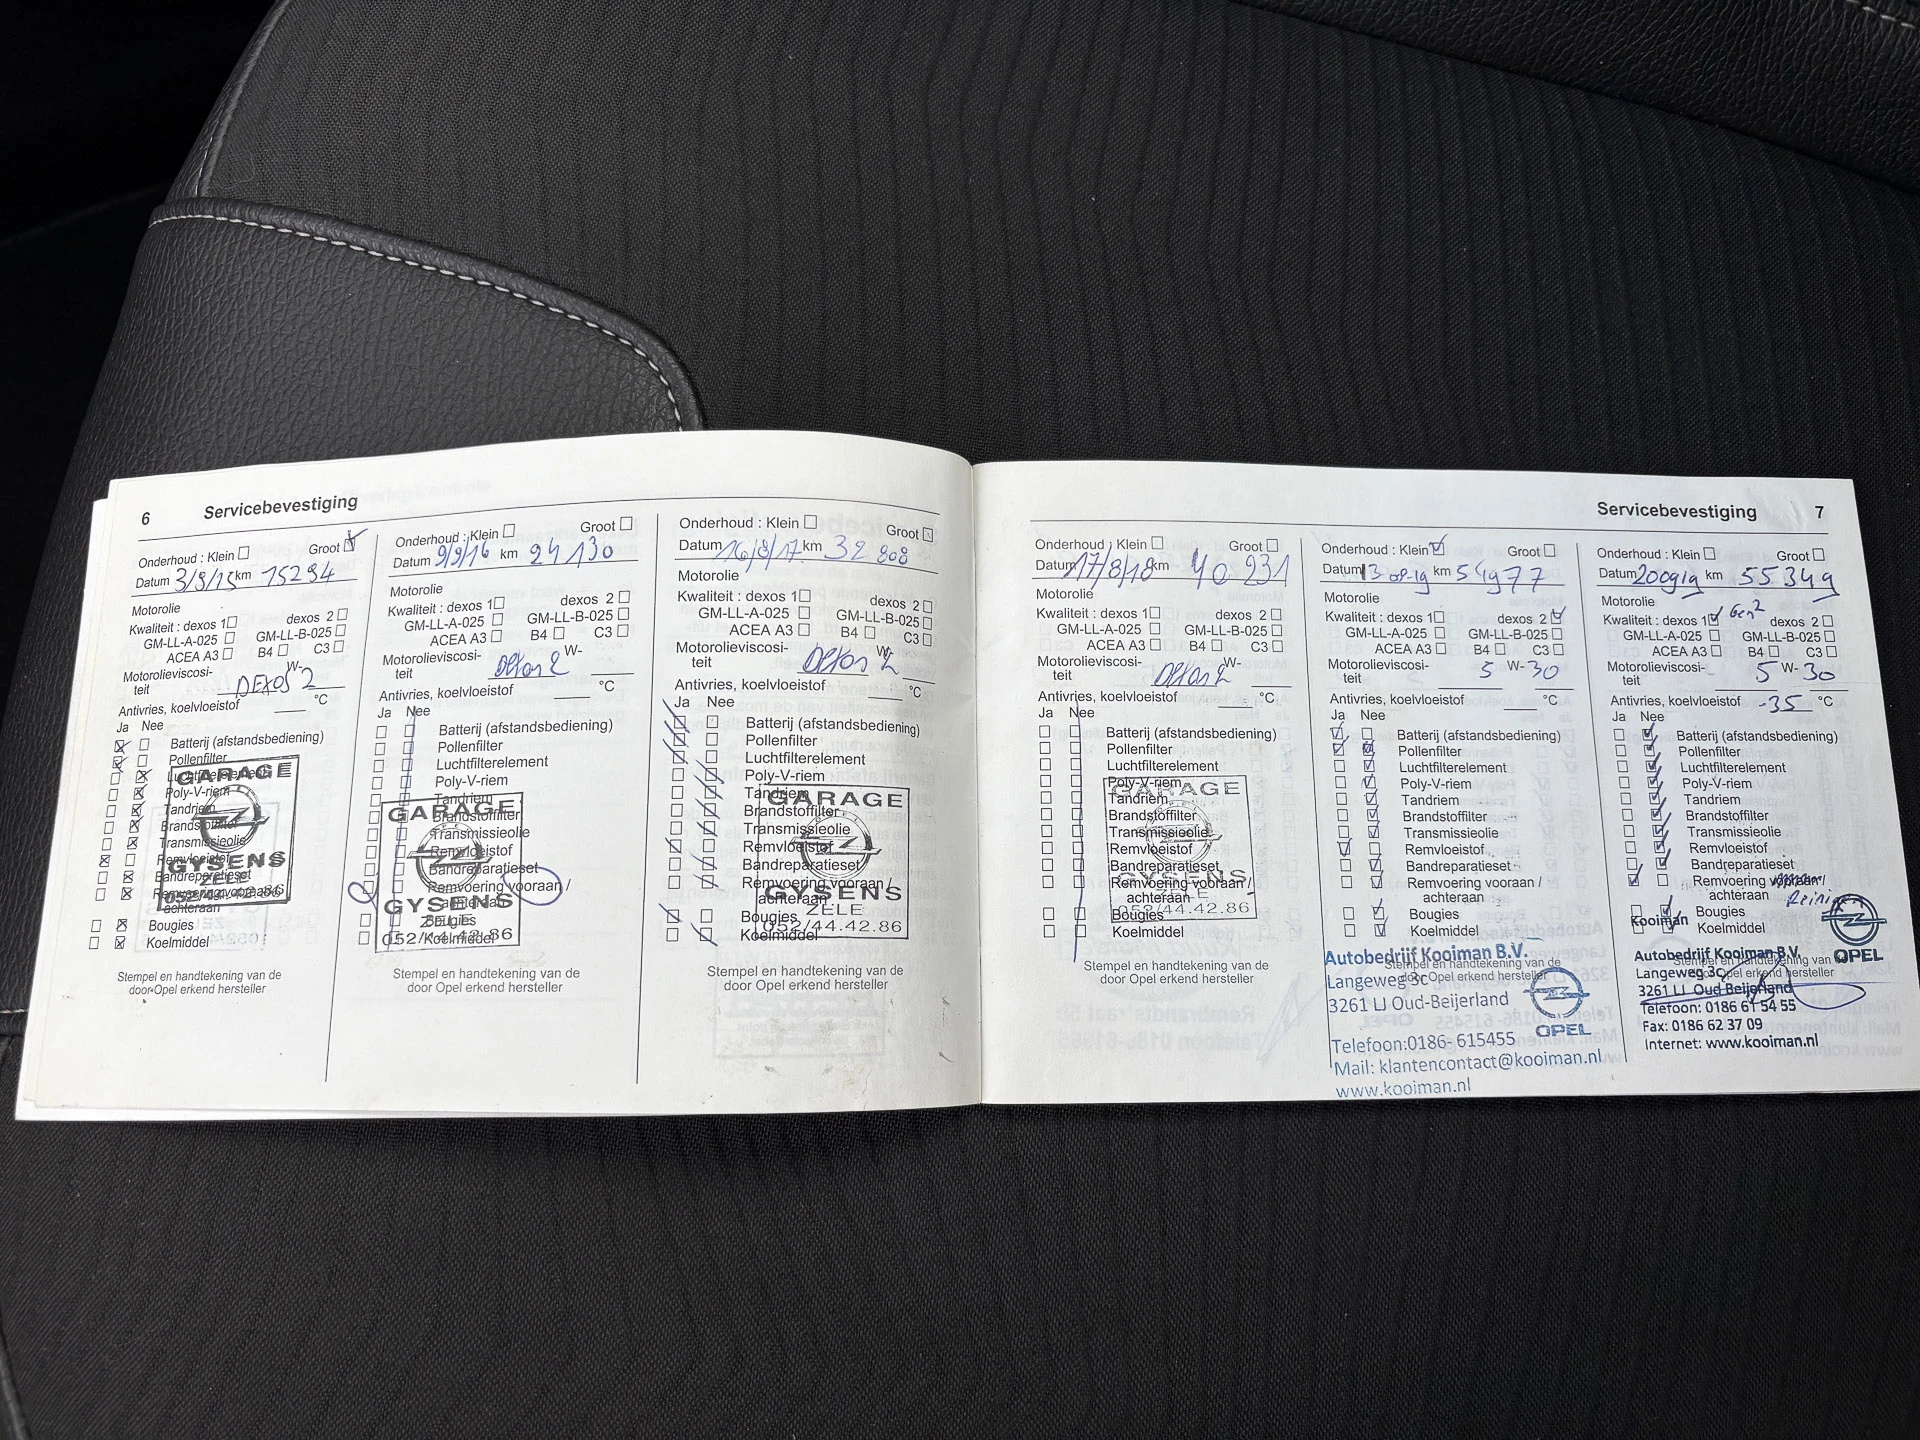 6 Servicebevestiging
Onderhoud : Klein Groot
Datum 3/9/15 km 15294
Motorolie
Kwaliteit : dexos 1 dexos 2
GM-LL-A-025 GM-LL-B-025
ACEA A3 B4 C3
Motorolieviscosi- W-
teit DEXOS 2
Antivries, koelvloeistof °C
Ja Nee
Batterij (afstandsbediening)
Pollenfilter
Luchtfilterelement
Poly-V-riem
Tandriem
Brandstoffilter
Transmissieolie
Remvloeistof
Bandreparatieset
Remvoering vooraan /
achteraan
Bougies
Koelmiddel
GARAGE
GYSENS
ZELE
052/44.42.86
Stempel en handtekening van de
door Opel erkend hersteller
Onderhoud : Klein Groot
Datum 9/9/16 km 24130
Motorolie
Kwaliteit : dexos 1 dexos 2
GM-LL-A-025 GM-LL-B-025
ACEA A3 B4 C3
Motorolieviscosi- W-
teit Dexos 2
Antivries, koelvloeistof °C
Ja Nee
Batterij (afstandsbediening)
Pollenfilter
Luchtfilterelement
Poly-V-riem
Tandriem
Brandstoffilter
Transmissieolie
Remvloeistof
Bandreparatieset
Remvoering vooraan /
achteraan
Bougies
Koelmiddel
GARAGE
GYSENS
ZELE
052/44.42.86
Stempel en handtekening van de
door Opel erkend hersteller
Onderhoud : Klein Groot
Datum 16/8/17 km 32 808
Motorolie
Kwaliteit : dexos 1 dexos 2
GM-LL-A-025 GM-LL-B-025
ACEA A3 B4 C3
Motorolieviscosi- W-
teit Dexos 2
Antivries, koelvloeistof °C
Ja Nee
Batterij (afstandsbediening)
Pollenfilter
Luchtfilterelement
Poly-V-riem
Tandriem
Brandstoffilter
Transmissieolie
Remvloeistof
Bandreparatieset
Remvoering vooraan /
achteraan
Bougies
Koelmiddel
GARAGE
GYSENS
ZELE
052/44.42.86
Stempel en handtekening van de
door Opel erkend hersteller
Servicebevestiging 7
Onderhoud : Klein Groot
Datum 17/8/18 km 40 231
Motorolie
Kwaliteit : dexos 1 dexos 2
GM-LL-A-025 GM-LL-B-025
ACEA A3 B4 C3
Motorolieviscosi- W-
teit Dexos 2
Antivries, koelvloeistof °C
Ja Nee
Batterij (afstandsbediening)
Pollenfilter
Luchtfilterelement
Poly-V-riem
Tandriem
Brandstoffilter
Transmissieolie
Remvloeistof
Bandreparatieset
Remvoering vooraan /
achteraan
Bougies
Koelmiddel
GARAGE
GYSENS
ZELE
052/44.42.86
Stempel en handtekening van de
door Opel erkend hersteller
Onderhoud : Klein Groot
Datum 13-08-19 km 54977
Motorolie
Kwaliteit : dexos 1 dexos 2
GM-LL-A-025 GM-LL-B-025
ACEA A3 B4 C3
Motorolieviscosi- 5 W-30
teit
Antivries, koelvloeistof °C
Ja Nee
Batterij (afstandsbediening)
Pollenfilter
Luchtfilterelement
Poly-V-riem
Tandriem
Brandstoffilter
Transmissieolie
Remvloeistof
Bandreparatieset
Remvoering vooraan /
achteraan
Bougies
Koelmiddel
Stempel en handtekening van de
door Opel erkend hersteller
Autobedrijf Kooiman B.V.
Langeweg 3c
3261 LJ Oud-Beijerland
OPEL
Telefoon:0186- 615455
Mail: klantencontact@kooiman.nl
www.kooiman.nl
Onderhoud : Klein Groot
Datum 200919 km 55349
Motorolie
Kwaliteit : dexos 1 Gen2
GM-LL-A-025 GM-LL-B-025
ACEA A3 B4 C3
Motorolieviscosi- 5 W-30
teit
Antivries, koelvloeistof -35 °C
Ja Nee
Batterij (afstandsbediening)
Pollenfilter
Luchtfilterelement
Poly-V-riem
Tandriem
Brandstoffilter
Transmissieolie
Remvloeistof
Bandreparatieset
Remvoering vooraan /
achteraan
Bougies
Koelmiddel
Stempel en handtekening van de
door Opel erkend hersteller
Kooiman
OPEL
Autobedrijf Kooiman B.V.
Langeweg 3c
3261 LJ Oud Beijerland
Telefoon: 0186 61 54 55
Fax: 0186 62 37 09
Internet: www.kooiman.nl